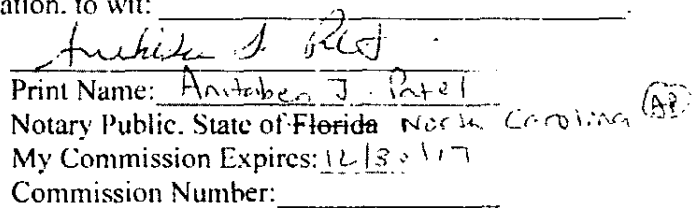 ation, to wit:
Print Name: Anitaben J. Patel
Notary Public, State of Florida North Carolina AP
My Commission Expires: 12/30/17
Commission Number: